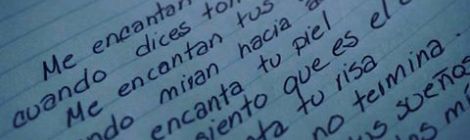 Me encantan
cuando dices ton
Me encantan tus
ndo miran hacia a
encanta tu piel
siento que es el c
ta tu risa
no termina.
us sueños